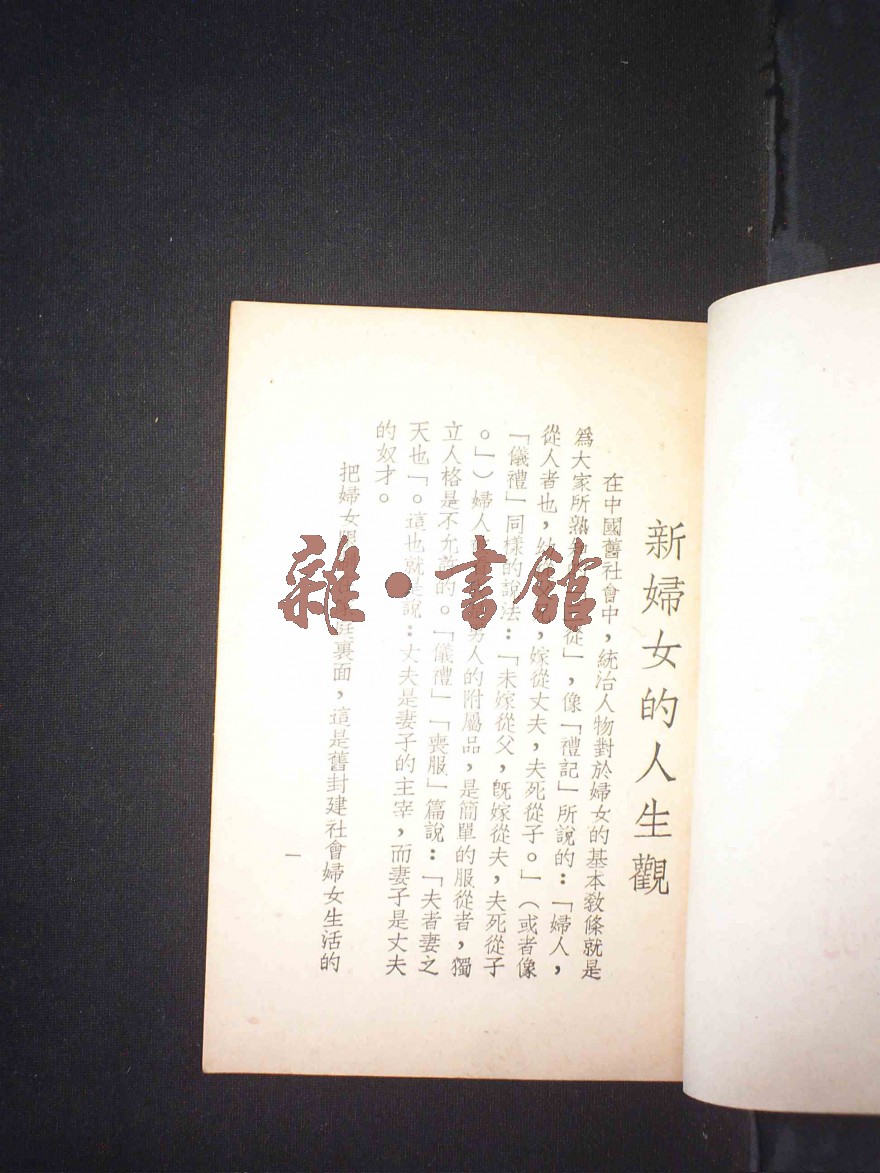 新婦女的人生觀
在中國舊社會中，統治人物對於婦女的基本教條就是
爲大家所熟從」，像「禮記」所說的：「婦人，
從人者也，幼，嫁從丈夫，夫死從子。」（或者像
「儀禮」同樣的說法：「未嫁從父，旣嫁從夫，夫死從子
。」）婦人男人的附屬品，是簡單的服從者，獨
立人格是不允許的。「儀禮」「喪服」篇說：「夫者妻之
天也「。這也就是說：丈夫是妻子的主宰，而妻子是丈夫
的奴才。
把婦女限庭裏面，這是舊封建社會婦女生活的
一
雜·書館